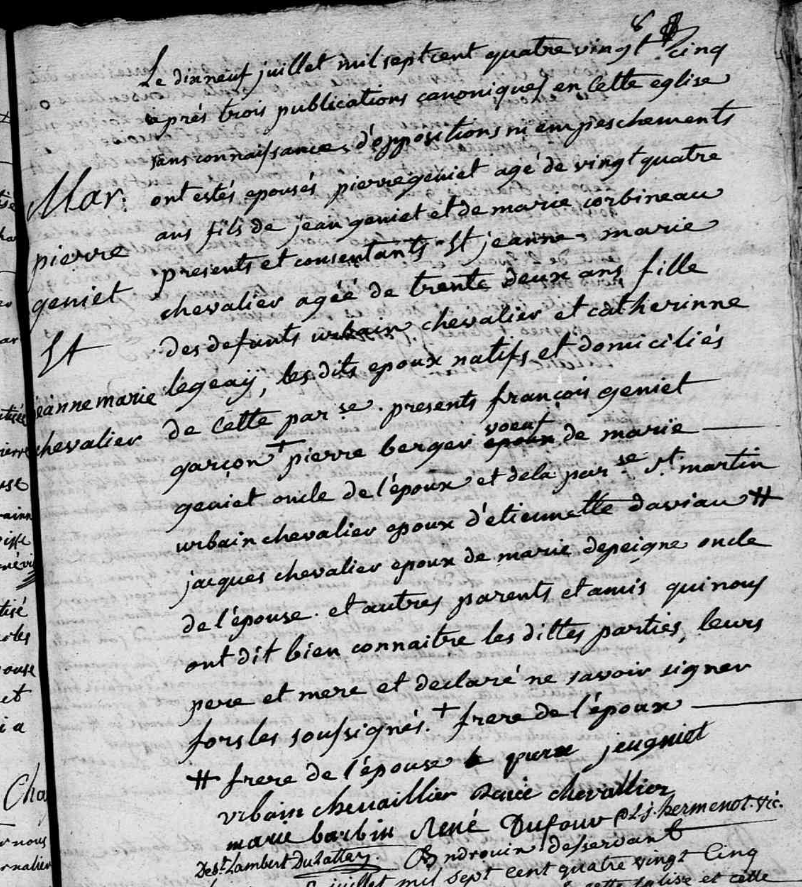 8
Le dixneuf juillet mil sept cent quatre vingt cinq
après trois publications canoniques en cette eglise
sans connaissance d'oppositions ni empeschements
ont estés epousés pierre geniet agé de vingt quatre
ans fils de jean geniet et de marie corbineau
presents et consentants Et jeanne marie
chevalier agéé de trente deux ans fille
des defunts urbain chevalier et catherinne
legeaÿ, les dits epoux natifs et domiciliés
de cette par se. presents françois geniet
garçon + pierre berger voeuf de marie
geniet oncle de l'époux et dela par se St martin
urbain chevalier epoux d'etiennette daviau #
jacques chevalier epoux de marie depeigne oncle
de l'épouse. et autres parents et amis qui nous
ont dit bien connaitre les dittes parties, leurs
pere et mere et declaré ne savoir signer
fors les soussignés. + frere de l'époux
# frere de l'épouse
jeugniet
urbain chevaillier chevallier
marie barbin René Dufour L. j. hermenot. vic.
Lambert Androuin desservant
juillet mil sept cent quatre vingt Cinq
cette Eglise et cette
Mar.
pierre
geniet
Et
jeanne marie
chevalier